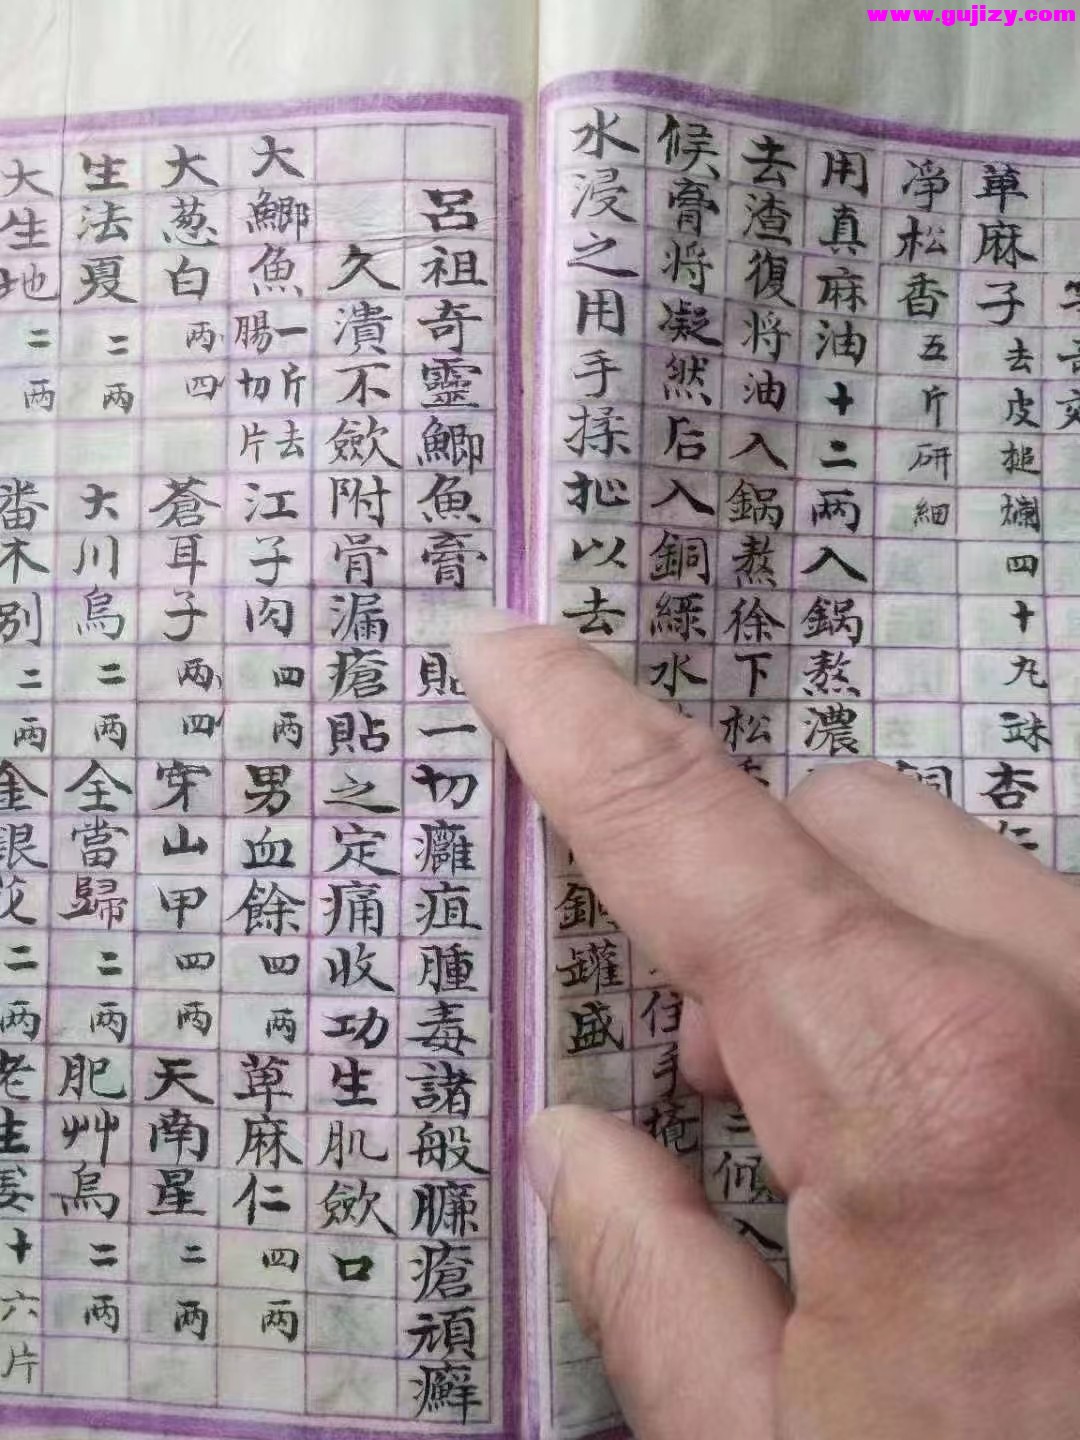 www.gujizy.com
草麻子去皮搥爛四十九𥹢杏仁
净松香五斤研細
用真麻油十二两入鍋熬濃
去渣復将油入鍋熬徐下松
候膏将凝然后入銅綠水
水浸之用手揉扯以去
銅罐盛
住手掩
二傾入
呂祖奇靈鯽魚膏 貼一切癰疽腫毒諸般臁瘡頑癬
久潰不斂附骨漏瘡貼之定痛收功生肌斂口
大鯽魚一片去腸切片 江子肉四两 男血餘四两 草麻仁四两
大葱白四两 蒼耳子四两 穿山甲四两 天南星二两
生法夏二两 大川烏二两 全當歸二两 肥艸烏二两
大生地二两 番木別二两 金銀花二两 老生姜十六片